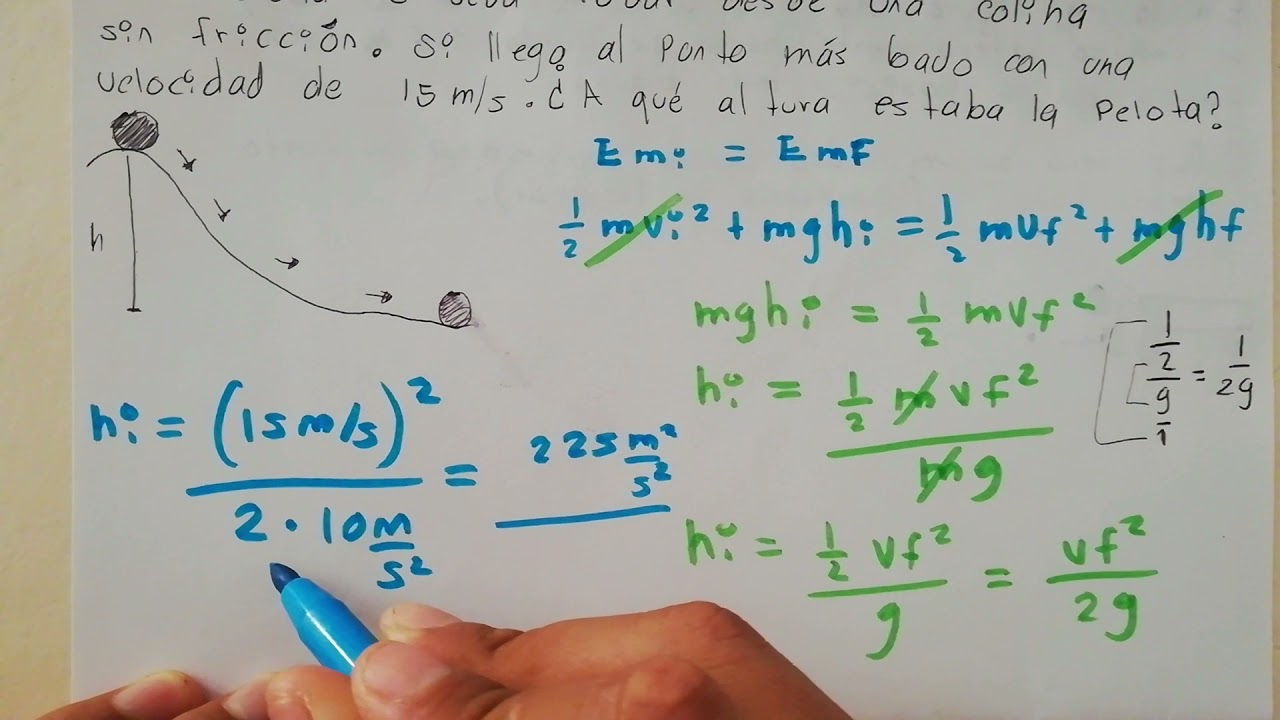 desde una colina
sin fricción. Si llega al Punto más bado con una
velocidad de 15 m/s. ¿A qué altura estaba la pelota?
Emi = EmF
1/2 mvi² + mghi = 1/2 mvf² + mghf
mghi = 1/2 mvf²
h
1/2 / g/1 = 1/2g
hi = 1/2 m vf² / mg
hi = (15 m/s)² / 2 · 10 m/s² = 225 m²/s²
hi = 1/2 vf² / g = vf² / 2g